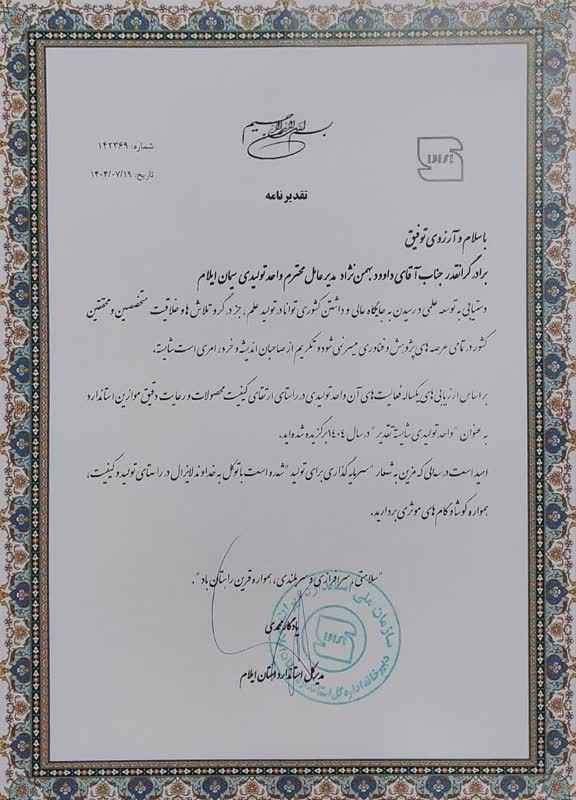 بسم الله الرحمن الرحیم
شماره: ۱۴۲۳۶۹
تاریخ: ۱۴۰۴/۰۷/۱۹
تقدیرنامه
با سلام و آرزوی توفیق
برادر گرانقدر جناب آقای داوود بهمن نژاد مدیرعامل محترم واحد تولیدی سیمان ایلام
دستیابی به توسعه علمی و رسیدن به جایگاه عالی و داشتن کشوری توانا در تولید علم، جز در گرو تلاش ها و خلاقیت متخصصین و محققین
کشور در تمامی عرصه های پژوهش و فناوری میسر نمی شود و تکریم از صاحبان اندیشه و خرد، امری است شایسته.
بر اساس ارزیابی های یکساله فعالیت های آن واحد تولیدی در راستای ارتقای کیفیت محصولات و رعایت دقیق موازین استاندارد
به عنوان "واحد تولیدی شایسته تقدیر" در سال ۱۴۰۴ برگزیده شده اید.
امید است در سالی که مزین به شعار "سرمایه گذاری برای تولید" شده است با توکل به خداوند لایزال در راستای تولید و کیفیت،
همواره کوشا و گام های موثری بردارید.
"سلامتی، سرافرازی و سربلندی، همواره قرین راستان باد".
یادگار محمدی
مدیرکل استاندارد استان ایلام
سازمان ملی استاندارد ایران
دبیرخانه اداره کل استاندارد